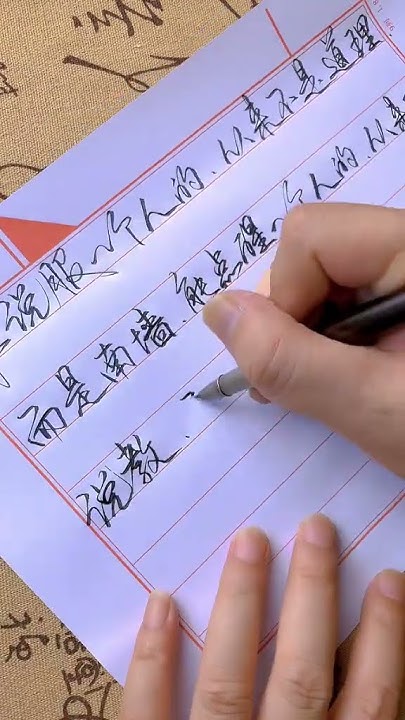 说服一个人的,从来不是道理,
而是南墙,能点醒一个人的,从来
说教,